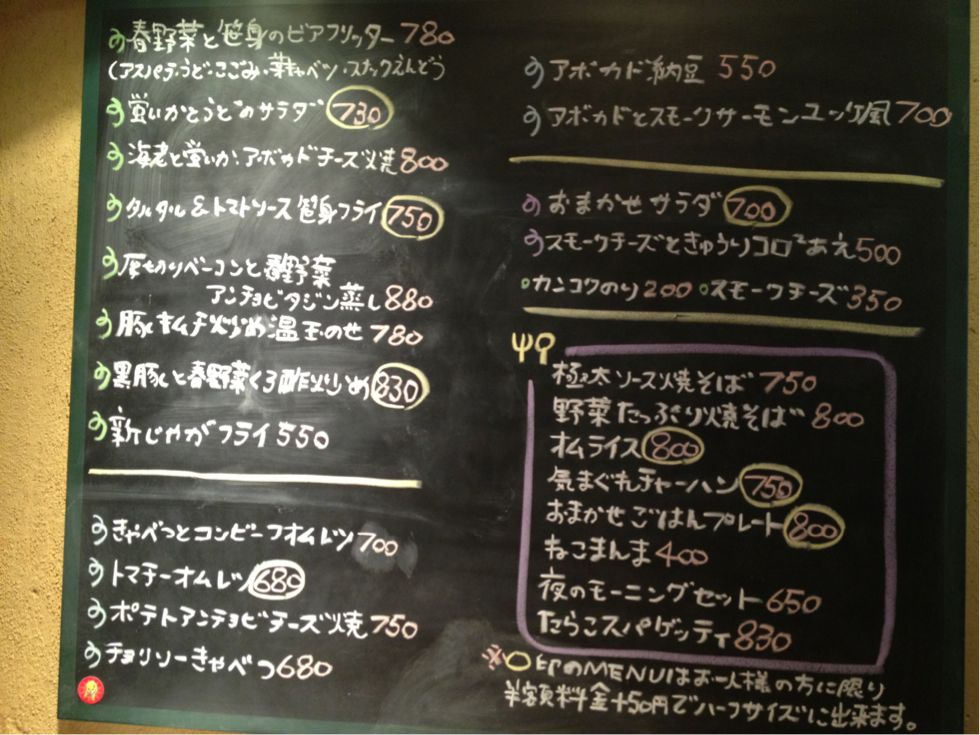 春野菜と笹身のビアフリッター780
(アスパラ・うど・こごみ・芽キャベツ・スナックえんどう
蛍いかとうどのサラダ 730
海老と蛍いか、アボカドチーズ焼800
タルタル&トマトソース笹身フライ 750
厚切りベーコンと春野菜
アンチョビタジン蒸し 880
豚キムチ炒め温玉のせ 780
黒豚と春野菜くろ酢炒め 830
新じゃがフライ 550
きゃべつとコンビーフオムレツ 700
トマチーオムレツ 680
ポテトアンチョビチーズ焼 750
チョリソーきゃべつ 680
アボカド納豆 550
アボカドとスモークサーモンユッケ風 700
おまかせサラダ 700
スモークチーズときゅうりコロ²あえ 500
カンコクのり 200 スモークチーズ 350
極太ソース焼そば 750
野菜たっぷり焼そば 800
オムライス 800
気まぐれチャーハン 750
おまかせごはんプレート 800
ねこまんま 400
夜のモーニングセット 650
たらこスパゲッティ 830
※○印のMENUはお一人様の方に限り
半額料金+50円でハーフサイズに出来ます。